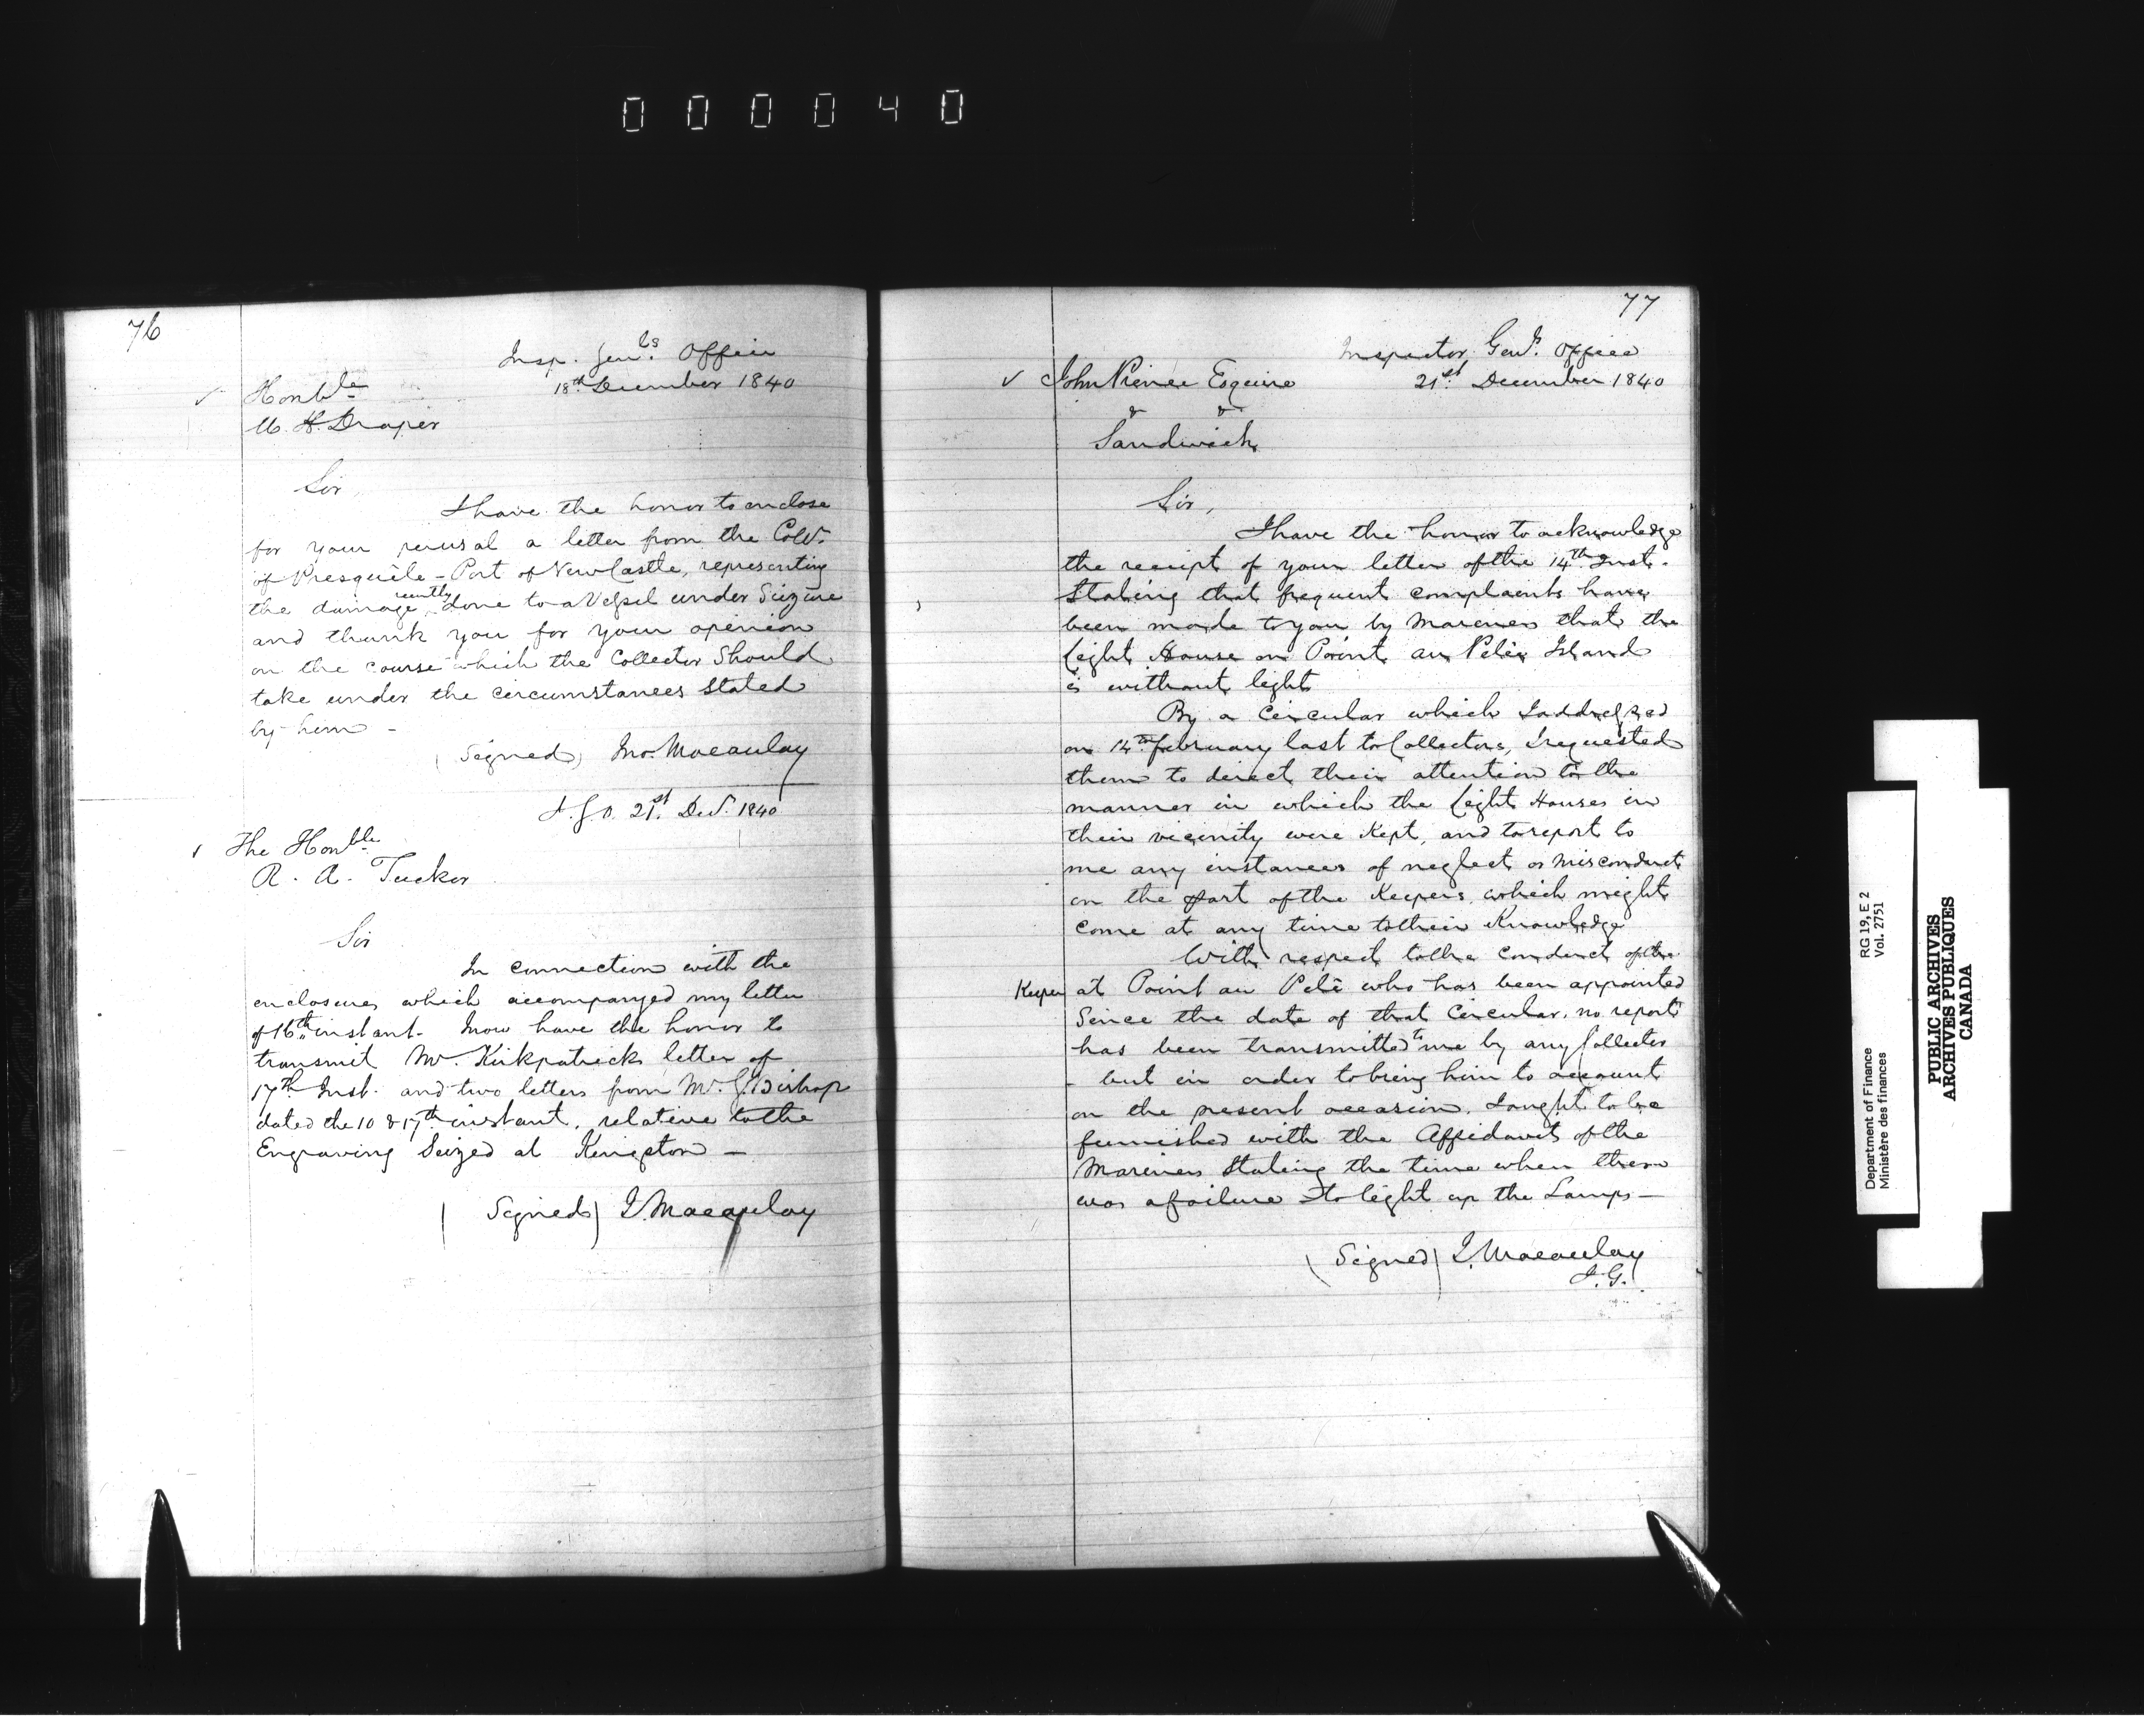 000040
76
Insp. Genls. Office
18th December 1840
Honble
W. H. Draper
Sir,
I have the honor to enclose
for your perusal a letter from the Collr.
of Presquile - Port of New Castle, representing
the damage recently done to a Vessel under Seizure
and thank you for your opinion
on the course which the Collector Should
take under the circumstances Stated
by him -
(Signed) Jno. Macaulay
I. G. O. 21st Decr. 1840
The Honble.
R. A. Tucker
Sir
In connection with the
enclosures which accompanyed my letter
of 16th instant. I now have the honor to
transmit Mr. Kirkpatricks letter of
17th Inst. and two letters from Mr. G Bishop
dated the 10 & 17th instant, relative to the
Engraving Seized at Kingston -
(Signed) J. Macaulay
77
Inspector Genls. Office
21st December 1840
John Prince Esquire
& &
Sandwich
Sir,
I have the honor to acknowledge
the receipt of your letter of the 14th Inst.
Stating that frequent complaints have
been made to you by Mariners that the
Light House on Point au Pelée Island
is without light
By a Circular which I addressed
on 14th February last to Collectors, I requested
them to direct their attention to the
manner in which the Light Houses in
their vicinity were Kept, and to report to
me any instances of neglect or misconduct
on the part of the Keepers which might
come at any time to their Knowledge
With respect to the conduct of the
Keeper at Point au Pelé who has been appointed
Since the date of that Circular, no report
has been transmitted to me by any Collector
- but in order to bring him to account
on the present occasion, I ought to be
furnished with the Affidavits of the
Mariners Stating the time when there
was a failure to light up the Lamps -
(Signed) J. Macaulay
I. G.
Department of Finance
Ministère des finances
RG 19, E 2
Vol. 2751
PUBLIC ARCHIVES
ARCHIVES PUBLIQUES
CANADA